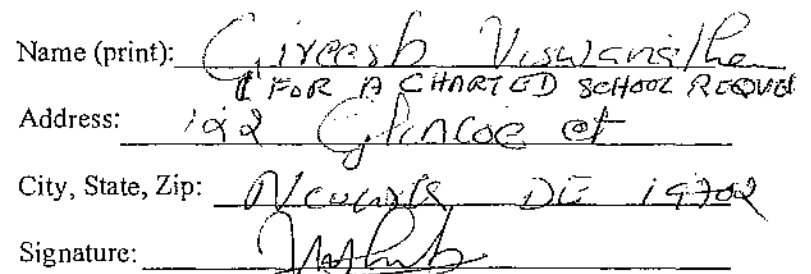 Name (print): Gireesh Viswanathan
( FOR A CHARTED SCHOOL REQUE
Address: 192 Glencoe ct
City, State, Zip: Newark DE 19702
Signature: